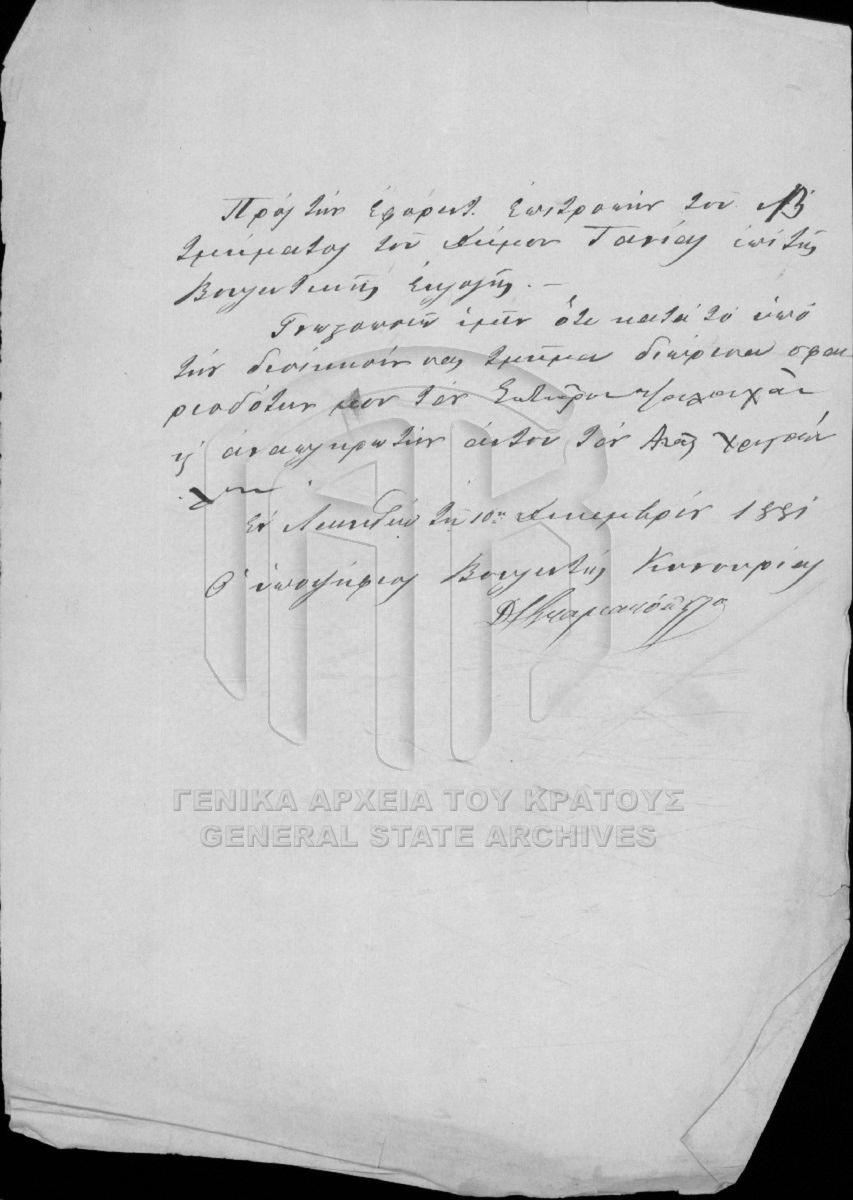 Πρὸς τὴν ἐφορευτ. Ἐπιτροπὴν τοῦ Β
τμήματος τοῦ δήμου Τανίας ἐπὶ τῆς
Βουλευτικῆς ἐκλογῆς. —
Γνωστοποιῶ ὑμῖν ὅτι κατὰ τὸ ὑπὸ
τὴν διοίκησίν σας τμῆμα διώρισα σφαι
ριοδότην μου τὸν Σωτῆρον
κ ἀναπληρωτὴν αὐτοῦ τὸν Αναγ
Ἐν τῇ 10ῃ Δεκεμβρίου 1881
Ὁ ὑποψήφιος Βουλευτὴς Κυνουρίας
ΓΕΝΙΚΑ ΑΡΧΕΙΑ ΤΟΥ ΚΡΑΤΟΥΣ
GENERAL STATE ARCHIVES